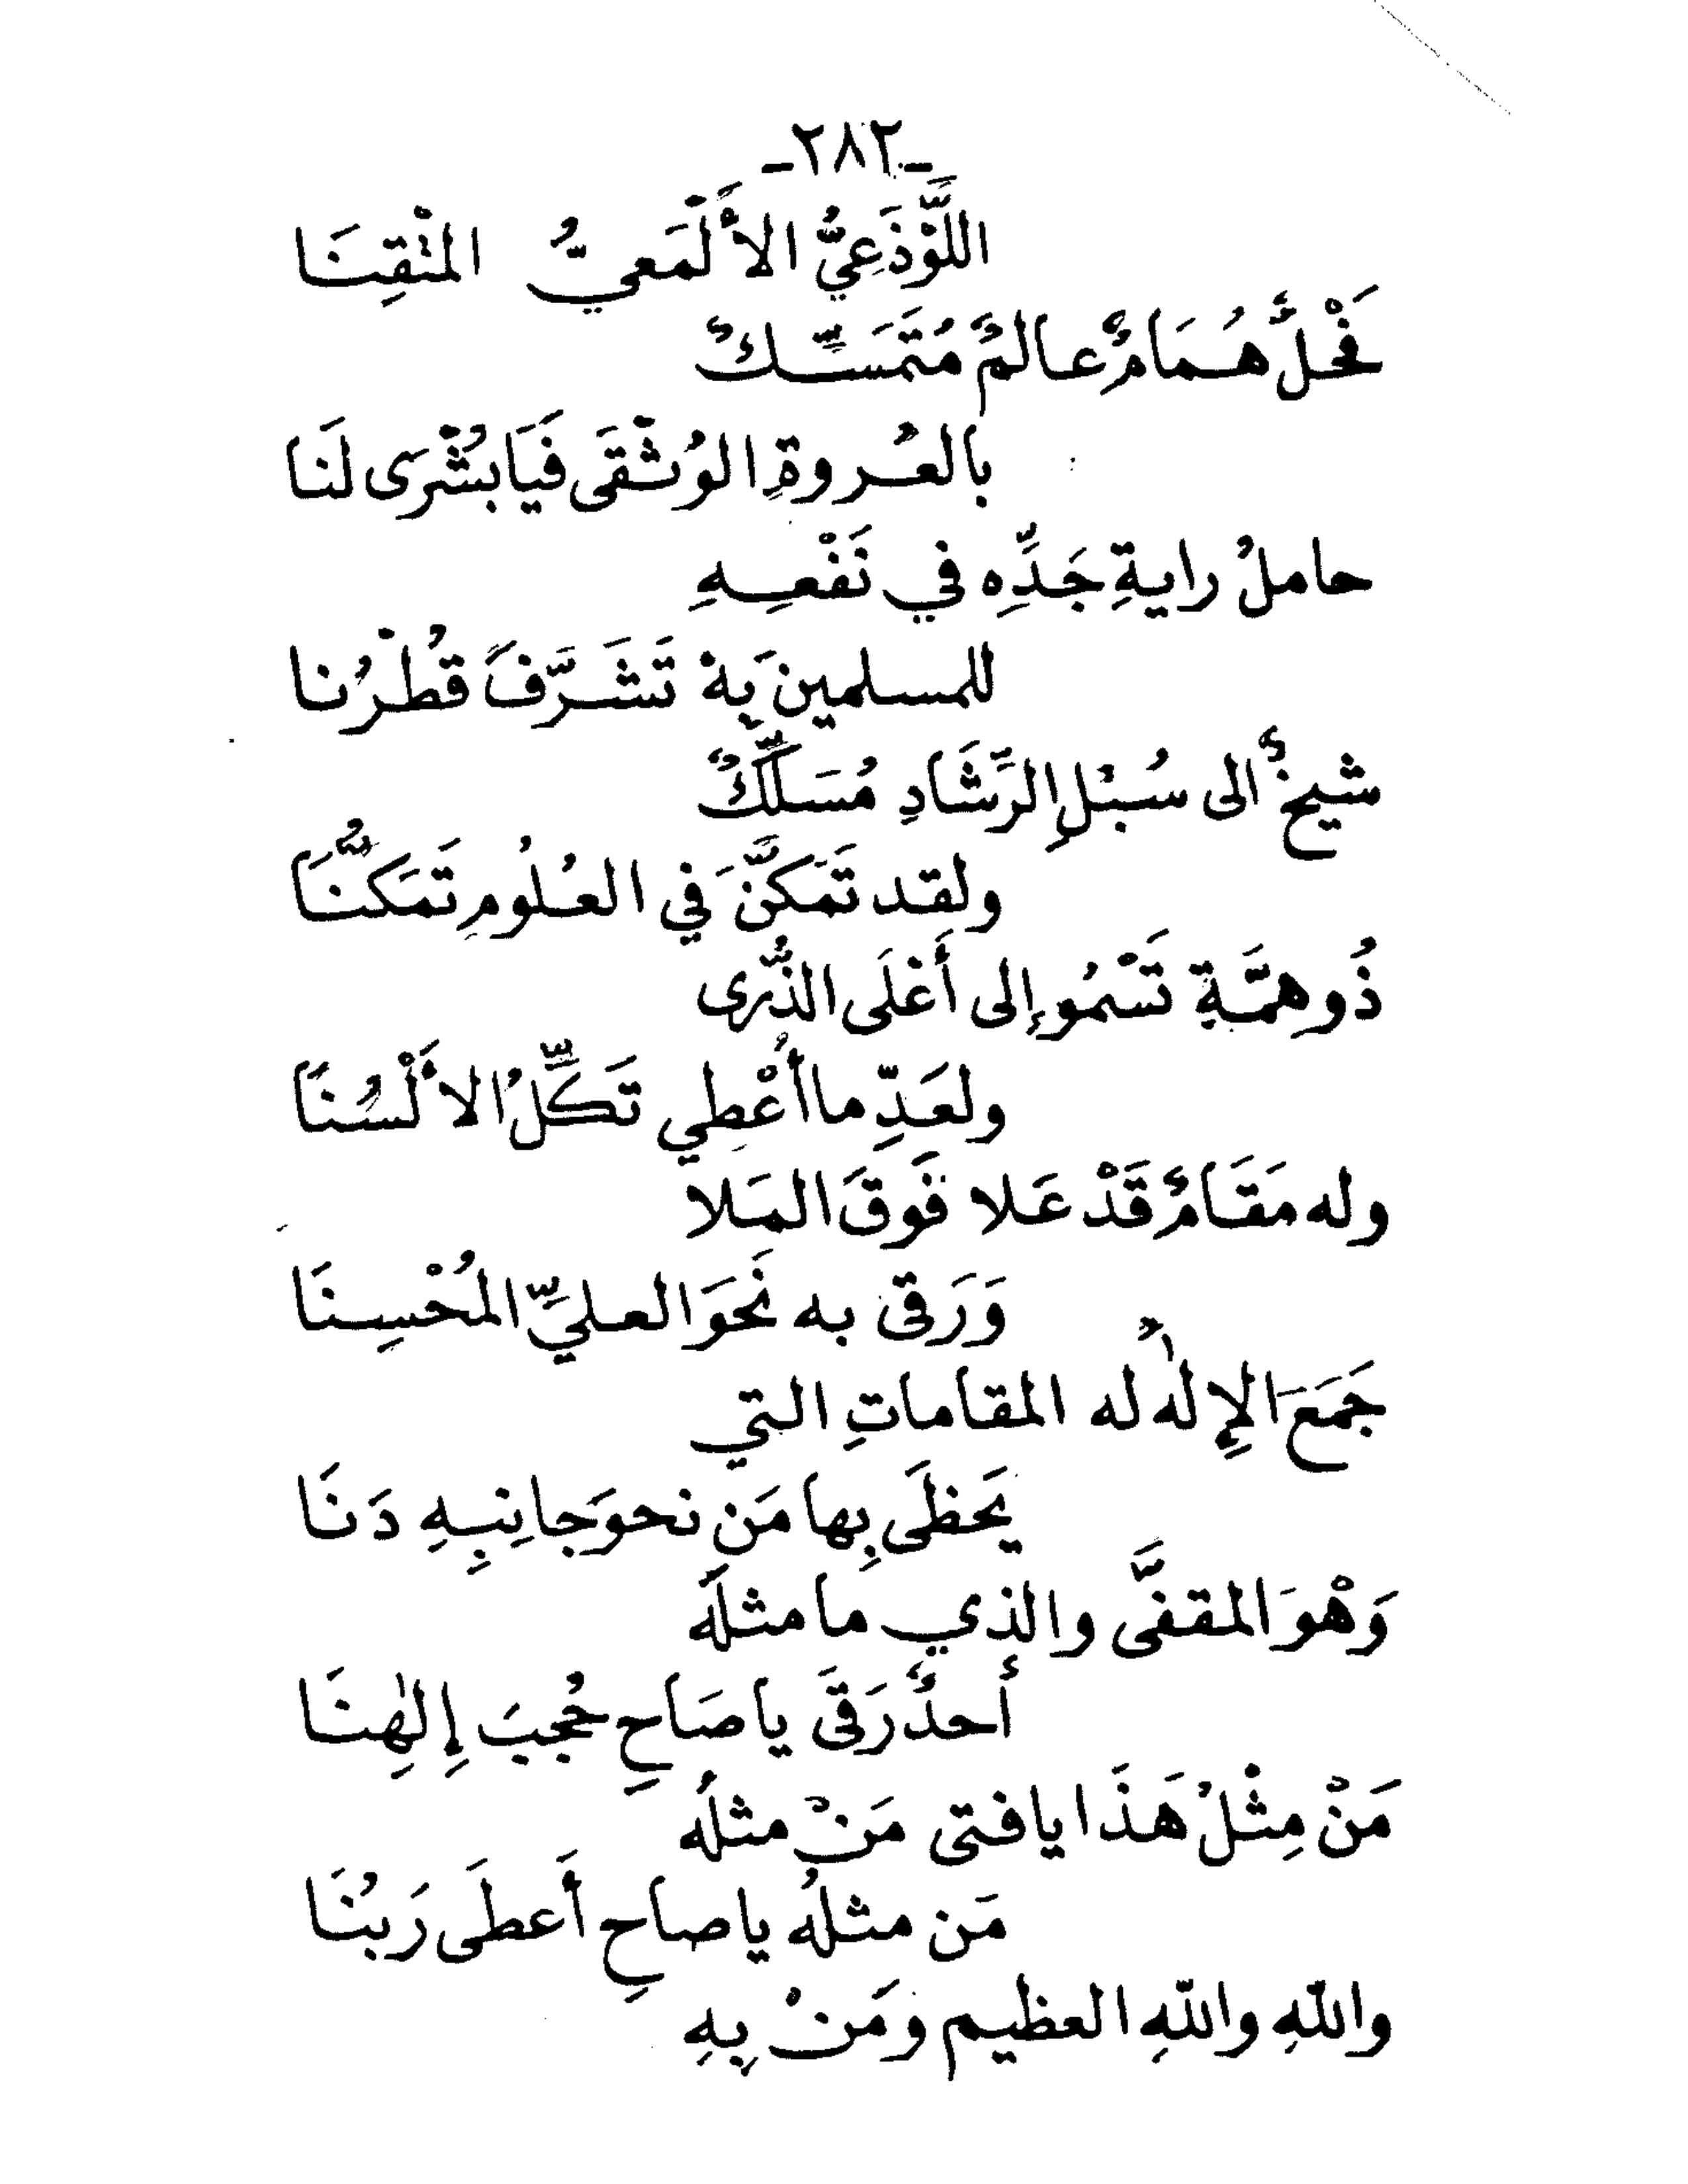 -٢٨٢-
اللَّوْذَعِيُّ الأَلْمَعيُّ المتْقِنَا
فَحْلٌ هُمَامٌ عالمٌ مُتَمَسِّكٌ
بالعُروةِ الوُثْقَى فَيَا بُشْرَى لَنَا
حاملُ رايةِ جَدِّهِ في نَفْعِهِ
للمسلمينَ بِهْ تَشَرَّفَ قُطْرُنا
شيخٌ الى سُبْلِ الرَّشَادِ مُسَلِّكٌ
ولقد تَمَكَّنَ في العُلُومِ تَمَكُّنَا
ذُو هِمَّةٍ تَسْمُو إلى أَعْلَى الذُّرى
ولعَدِّ ما أُعْطِي تَكِلُّ الأَلْسُنَا
وله مَقَامٌ قَدْ عَلا فَوقَ المَلا
وَرَقى به نَحوَ العليِّ المُحْسِنَا
جَمَعَ الإِلٰهُ له المقاماتِ التي
يَحظَى بِها مَن نحوَ جانِبِهِ دَنَا
وَهْوَ المقفَّى والذي ما مثلَهُ
أَحدٌ رَقَى يا صَاحِ حُجبَ إِلٰهِنَا
مَنْ مِثْلُ هَذَا يا فتى مَنْ مثلُه
مَن مثلُه يا صاحِ أَعطَى رَبُنَا
واللّهِ واللّهِ العظيم ومَنْ بِهِ